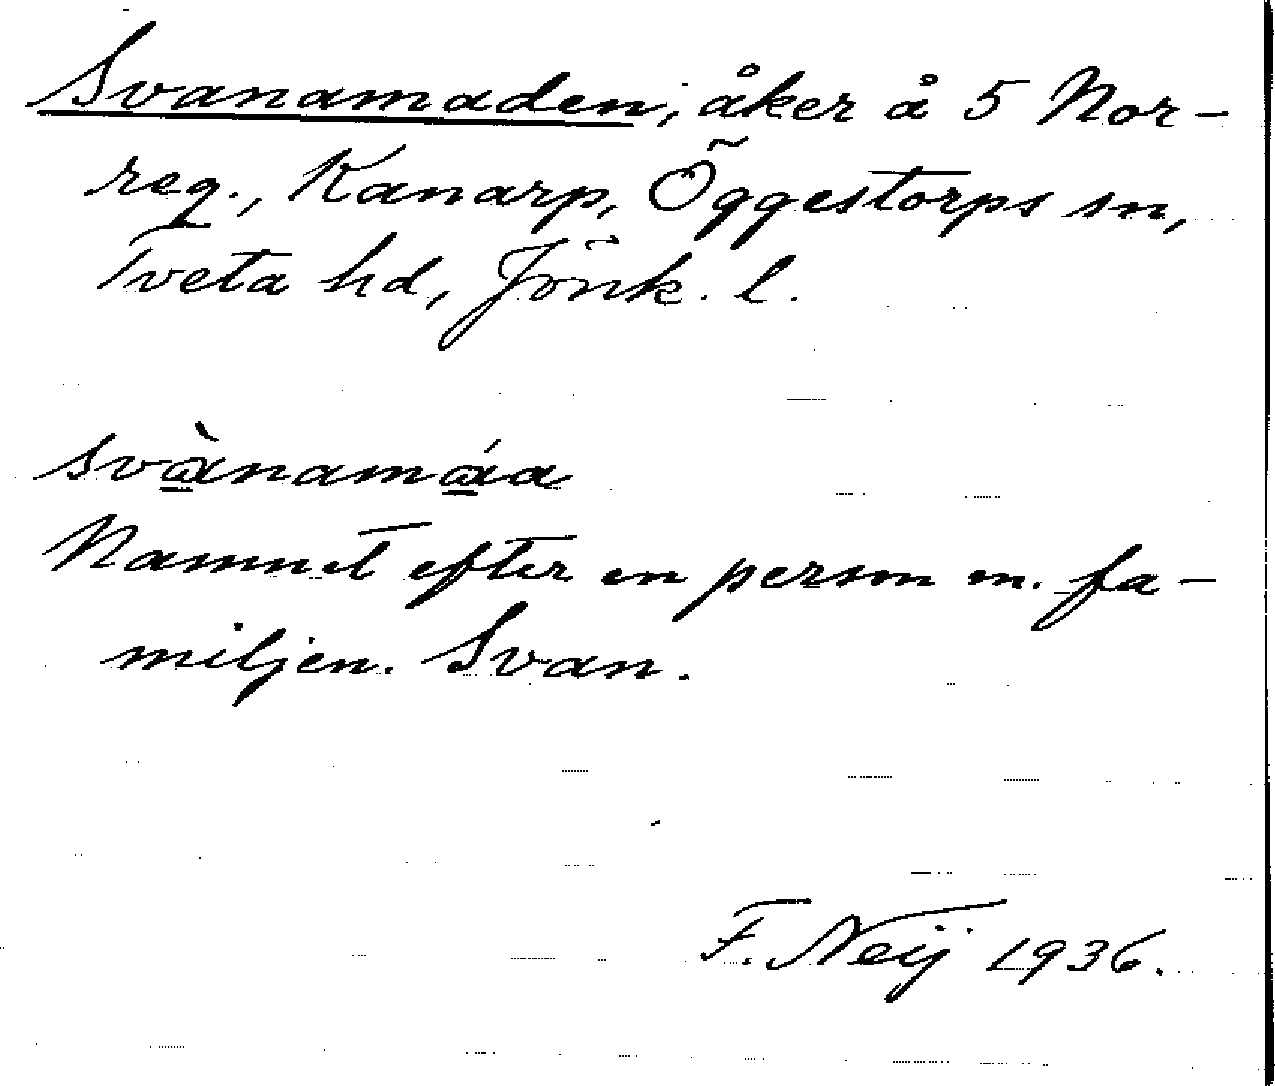 Svanamaden, åker å 5 Nor-
reg., Kanarp, Öggestorps sn,
Tveta hd, Jönk. l.
svànamáa
Namnet efter en person m. fa-
miljen. Svan.
F. Neij 1936.